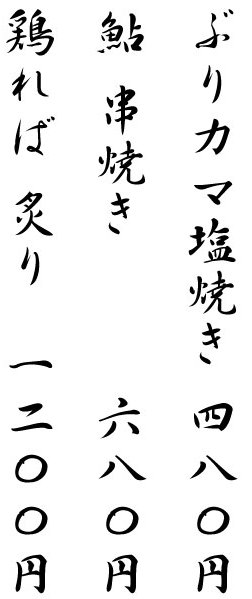 ぶりカマ塩焼き 四八〇円
鮎 串焼き 六八〇円
鶏ればー 炙り 一二〇〇円